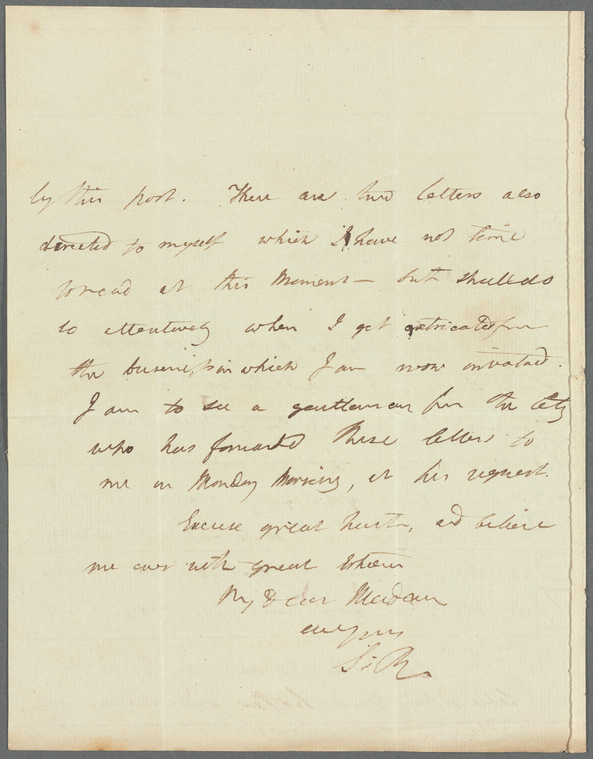 by this post. There are two letters also
directed to myself which I have not time
to read at this Moment — but shall do
so attentively when I get extricated from
the business in which I am now involved.
I am to see a gentleman from the City
who has forwarded these letters to
me on Monday Morning, at his request.
Excuse great haste, and believe
me ever with great Esteem
My Dear Madam